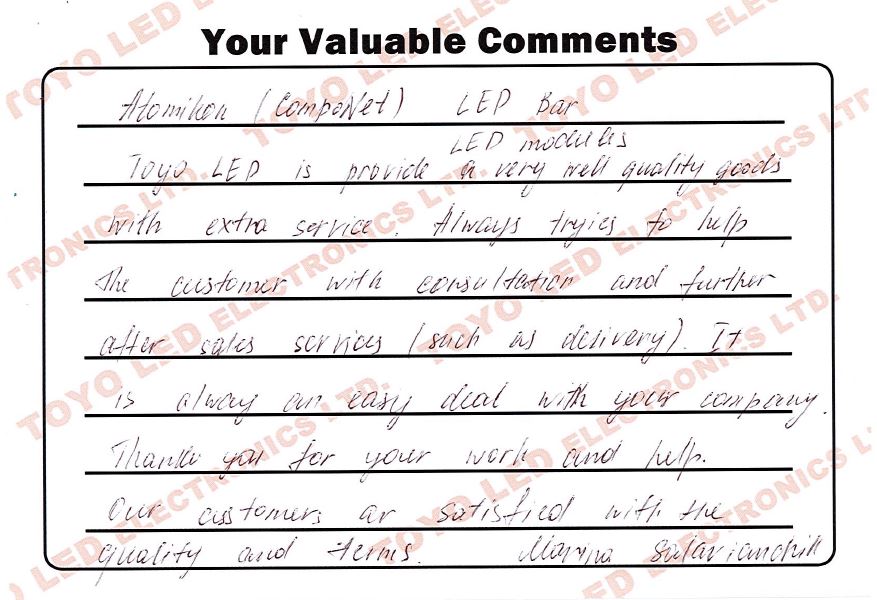 Your Valuable Comments
Atomikon (CompoNet) LED Bar
LED modules
Toyo LED is provide a very well quality goods
with extra service. Always tryies to help
The customer with consultation and further
after sales services (such as delivery). It
is always an easy deal with your company.
Thank you for your work and help.
Our customers ar satisfied with the
quality and terms. Marina
TOYO LED ELECTRONICS LTD.